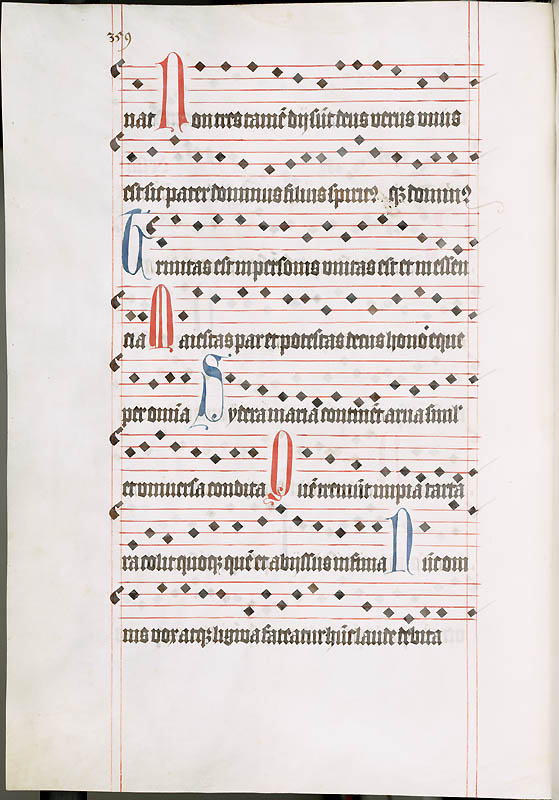 359
nat Non tres tamē dij sūt deus verus unus
est sic pater dominus filius spirit⁹ q3 domin⁹
Trinitas est in personis unitas est et in essen
cia Maiestas par et potestas decus honō eque
per omīa Sydera maria continēt arua simul
et universa condita Quē tremūt impia tarta
ra colit quoq3 quē et abyssus infima Nūc om
nis vox atq3 ligwa fateatur hūc laude debita